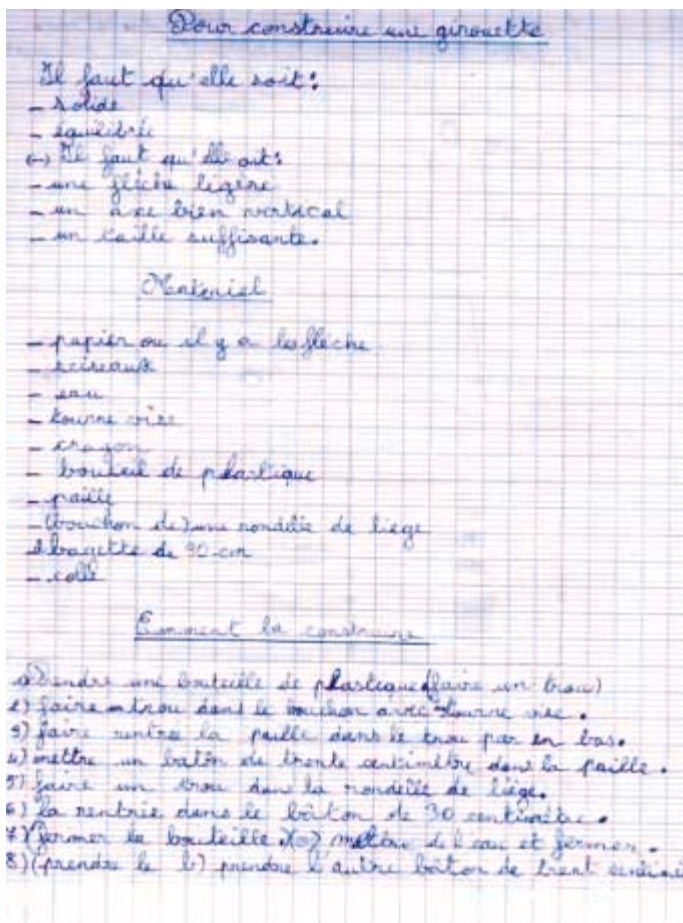 Pour construire une girouette
Il faut qu'elle soit :
- solide
- équilibrée
(-) Il faut qu'elle ait :
- une flèche légère
- un axe bien vertical
- un taille suffisante.
Materiel
- papier ou il y a la flèche
- sciseaux
- eau
- tourne vise
- crayon
- bouteil de plastique
- paille
- (bouchon de) une rondelle de liege
bagette de 90 cm
- colle
Comment la construire
1) Prendre une bouteille de plastique (faire un trou)
2) faire un trou dans le bouchon avec tourne vise.
3) faire rentrer la paille dans le trou par en bas.
4) mettre un batôn de trente centimètre dans la paille.
5) faire un trou dans la rondelle de liége.
6) la rentrée dans le bâton de 30 centimètre.
7) fermer la bouteille mettre de l'eau et fermer.
8) (prendre le b) prendre l'autre bâton de trent